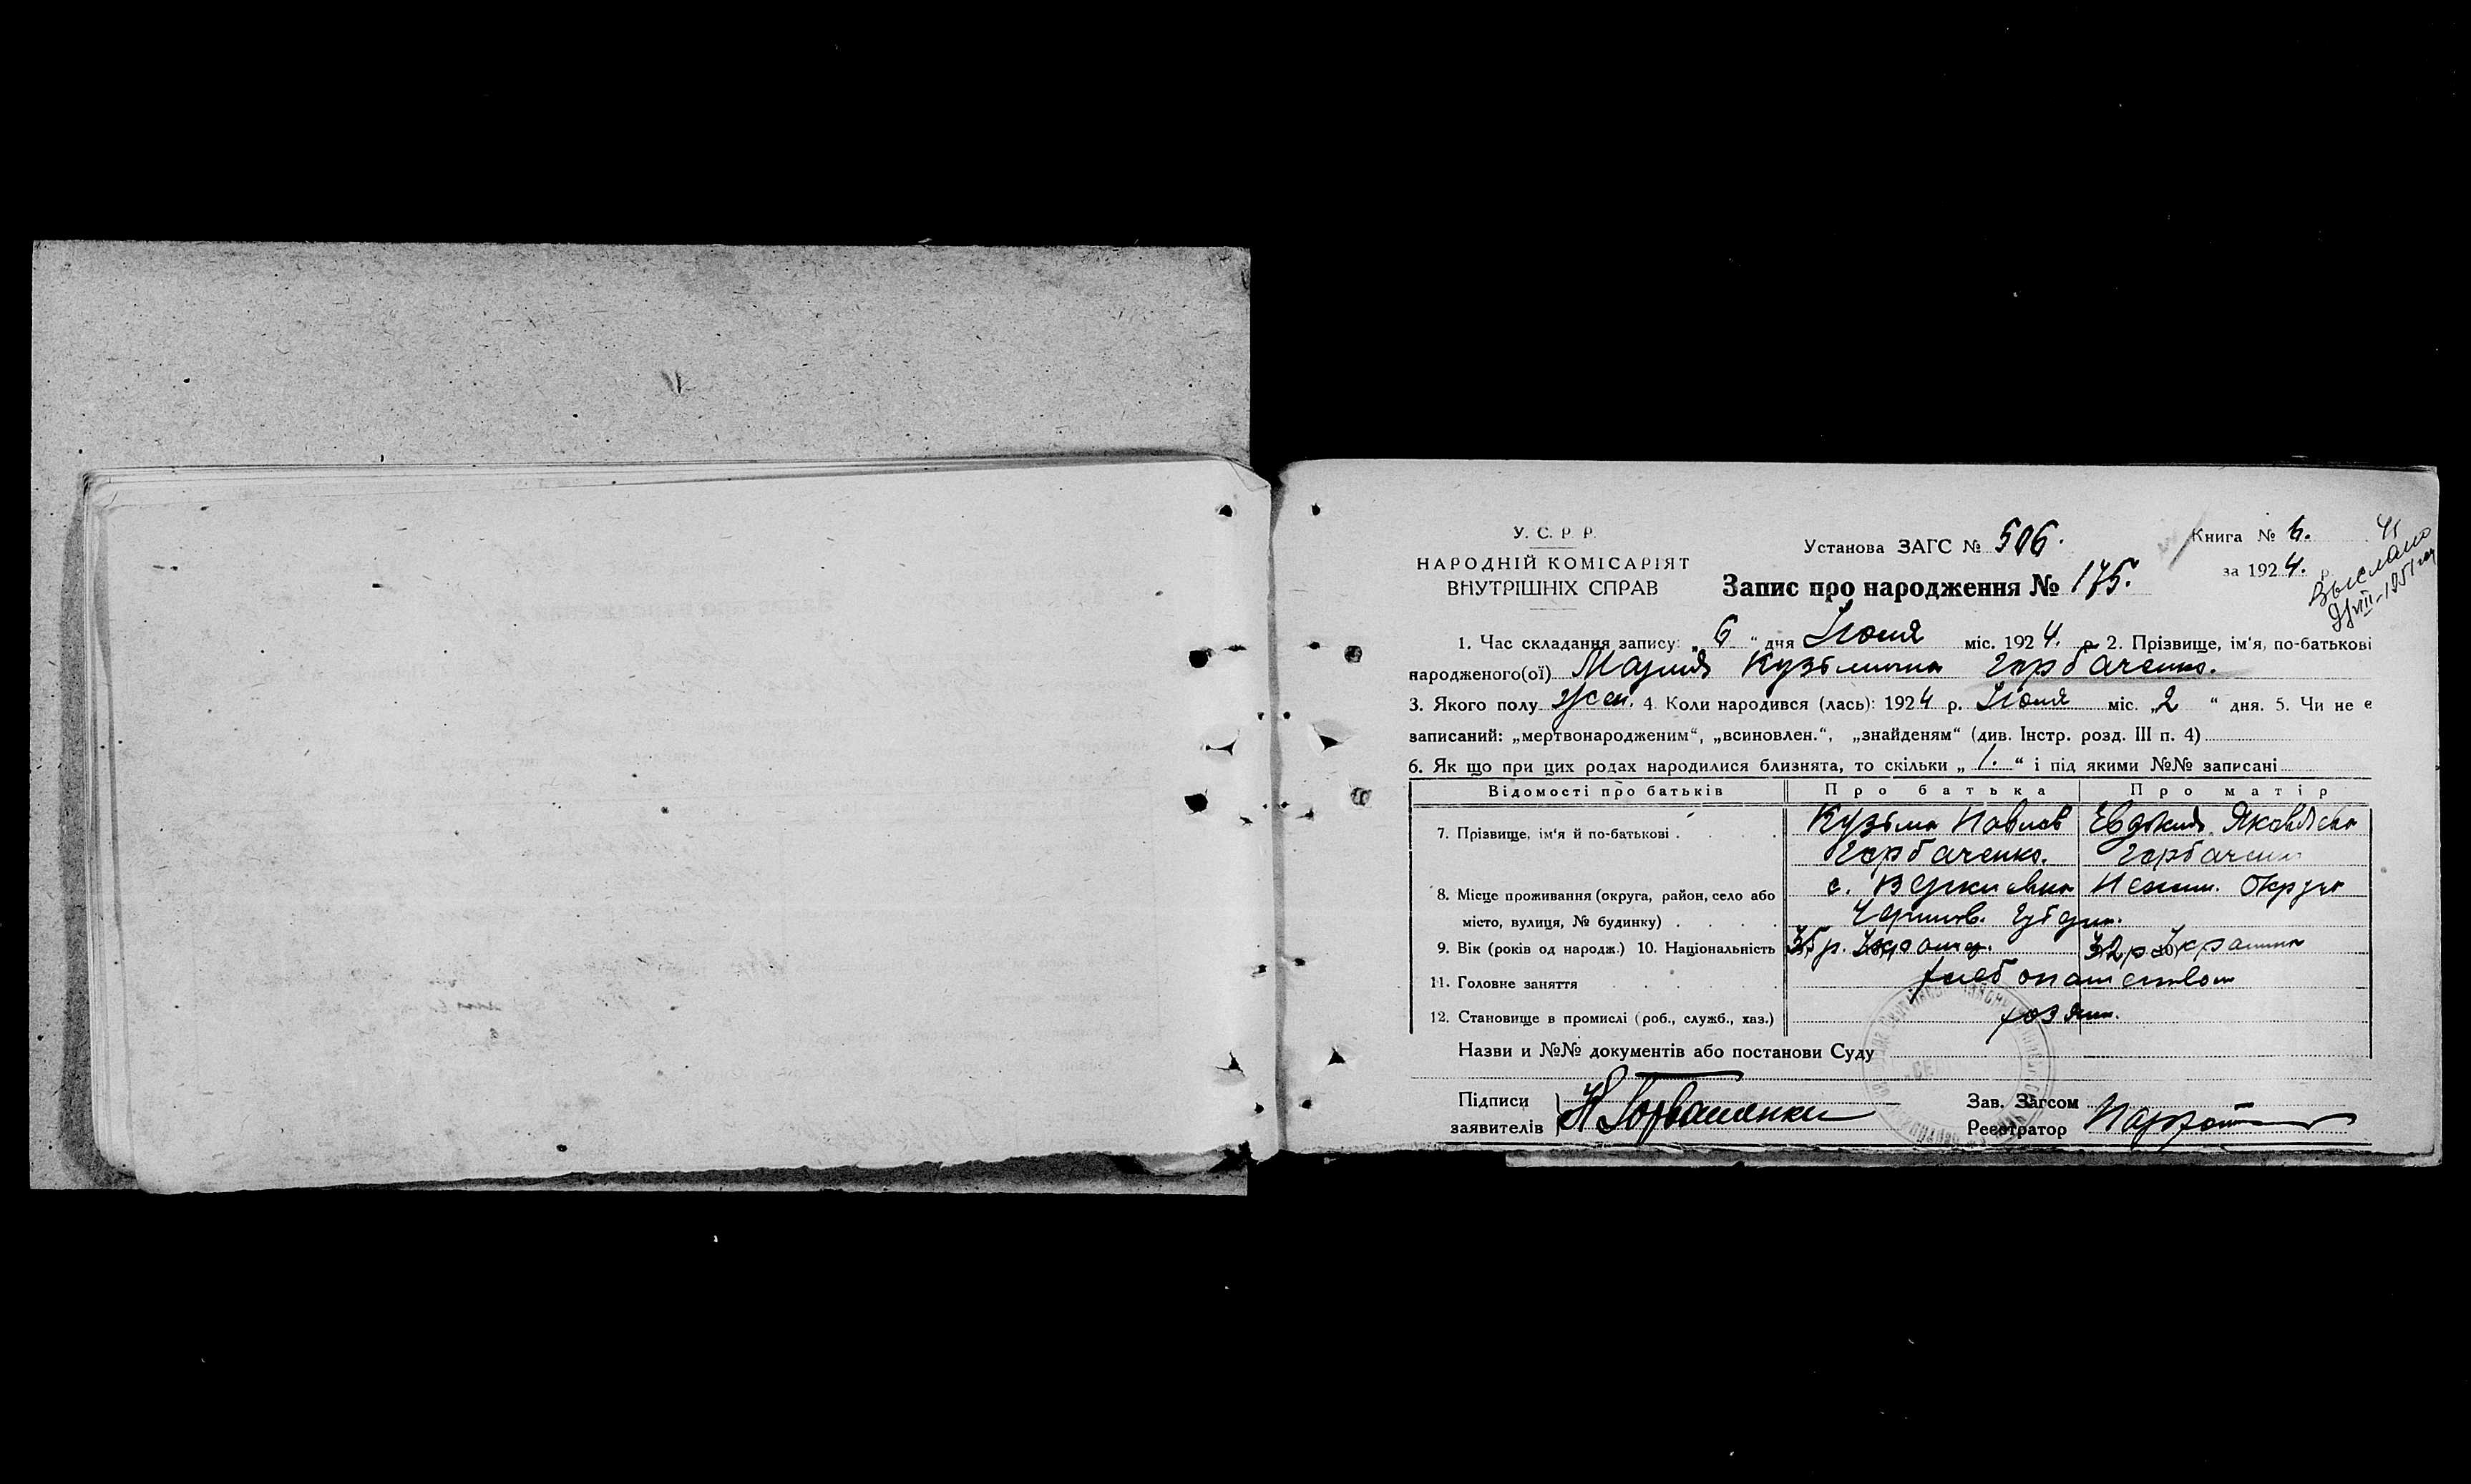 У. С. Р. Р.
НАРОДНІЙ КОМІСАРІЯТ
ВНУТРІШНІХ СПРАВ
Установа ЗАГС № 506.
Запис про народження № 175.
Книга № 6.
за 1924. р.
Выслано
VIII-1951
1. Час складання запису: „6“ дня Июня міс. 1924. р. 2. Прізвище, ім'я, по-батькові
народженого(ої) Мария Кузьминична Горбаченко.
3. Якого полу жен. 4. Коли народився (лась): 1924 р. Июня міс. „2“ дня. 5. Чи не є
записаний: „мертвонародженим“, „всиновлен.“, „знайденям“ (див. Інстр. розд. III п. 4)
6. Як що при цих родах народилися близнята, то скільки „1.“ і під якими №№ записані
Відомості про батьків Про батька Про матір
7. Прізвище, ім'я й по-батькові . . . . Кузьма Павлов Евдокия Яковлевна
Горбаченко. Горбаченко
8. Місце проживання (округа, район, село або с. Веркиевка Нежин. Округа
місто, вулиця, № будинку) . . . . Чернигов. Губерн.
9. Вік (років од народж.) 10. Національність 35 р. 32 р.
11. Головне заняття хлебопашеством
12. Становище в промислі (роб., служб., хаз.) хозяин.
Назви и №№ документів або постанови Суду
Підписи
заявителів
К Горбаченко
Зав. Загсом
Реєстратор